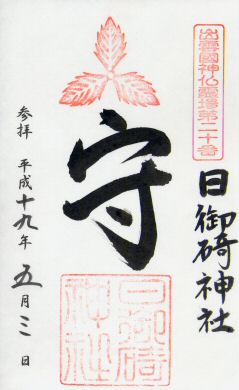 出雲國神仏霊場第二十番
日御碕神社
守
日御碕
神社
参拝 平成十九年 五月三日